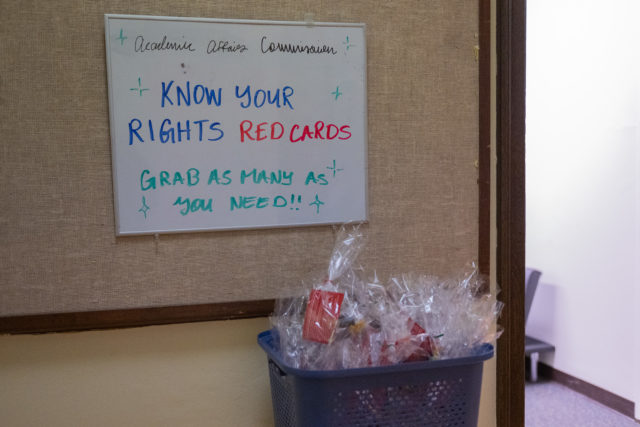 Academic Affairs Commission
KNOW YOUR
RIGHTS RED CARDS
GRAB AS MANY AS
YOU NEED!!